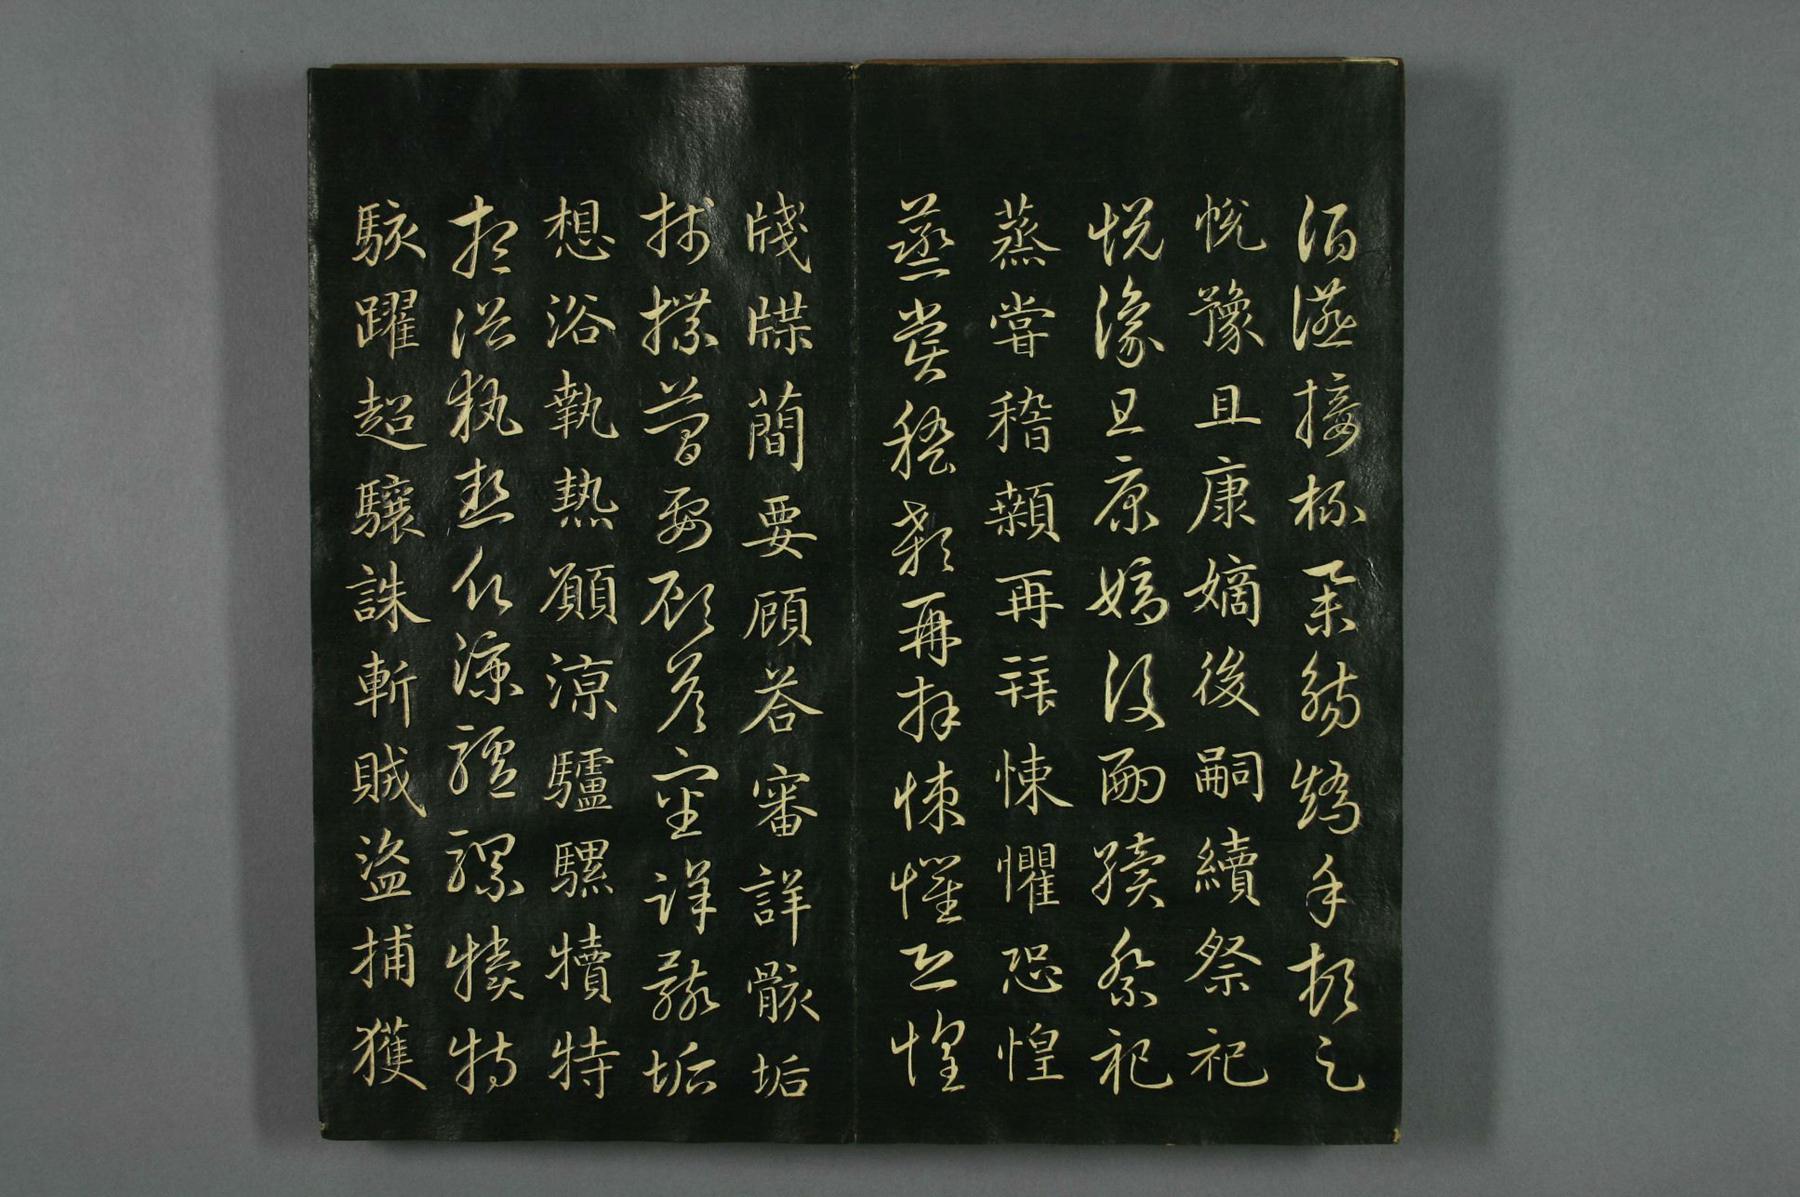 酒讌接杯舉觴矯手頓足
悅豫且康嫡後嗣續祭祀
悅豫且康嫡後嗣續祭祀
蒸嘗稽顙再拜悚懼恐惶
蒸嘗稽顙再拜悚懼恐惶
牋牒簡要顧荅審詳骸垢
牋牒簡要顧荅審詳骸垢
想浴執熱願涼驢騾犢特
想浴執熱願涼驢騾犢特
駭躍超驤誅斬賊盜捕獲